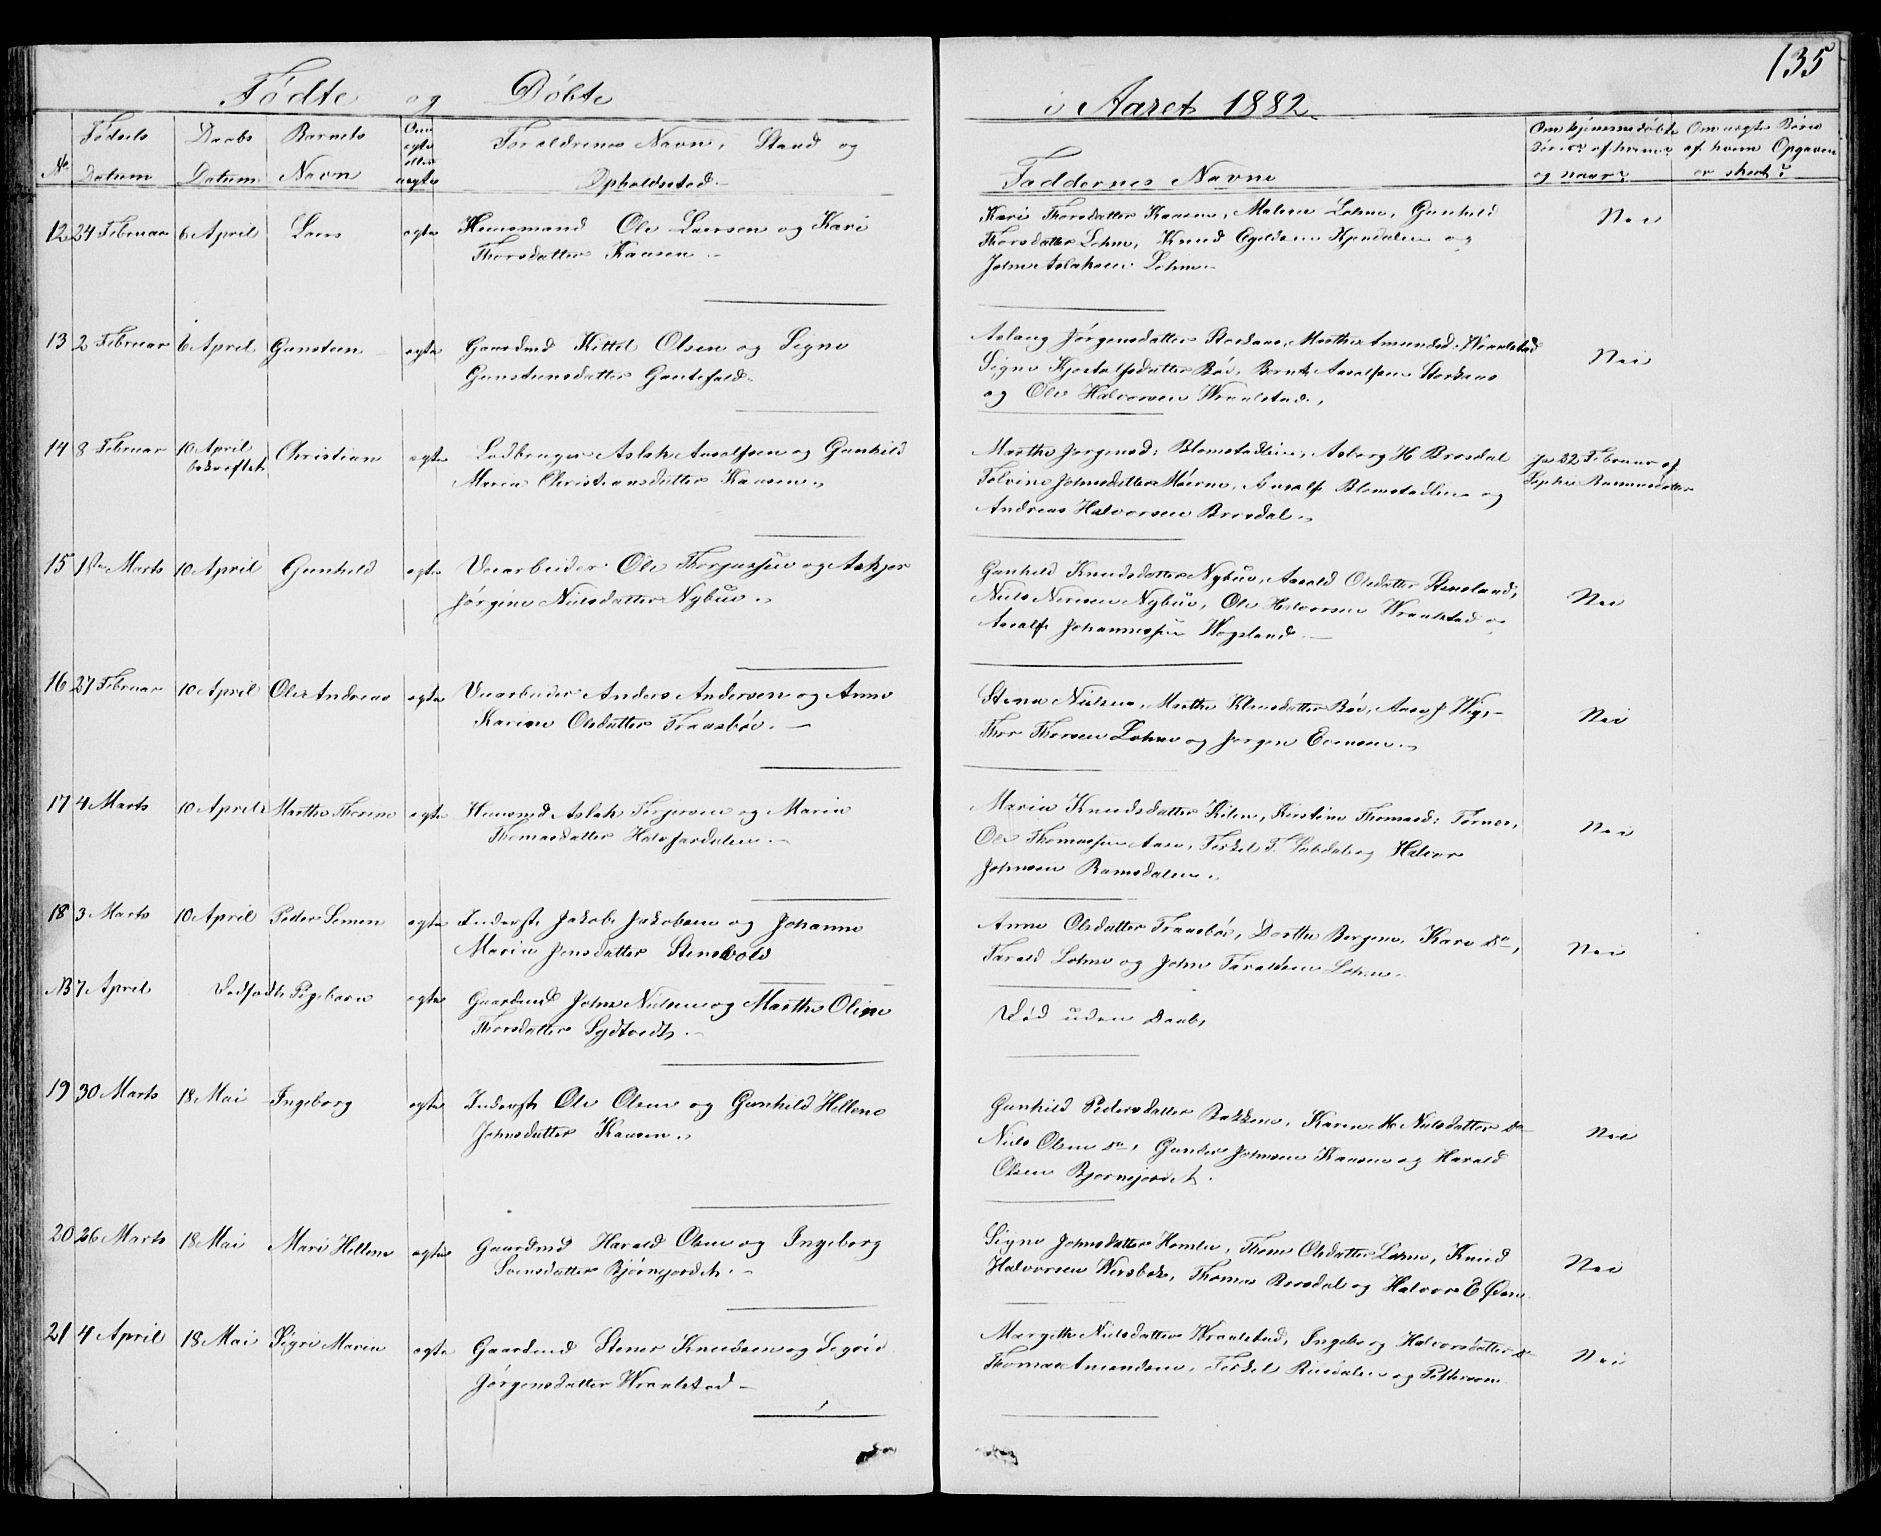 135
Fødte og Døbte i Aaret 1882.
№ Fødsels Datum
Daabs Datum
Barnets Navn
Om ægte eller uægte
Forældrenes Navn, Stand og
Opholdssted.
Faddernes Navne
Om hjemmedøbte
og naar?
Om uægte Børn
af hvem Opgaven
er skeet?
12 24 Februar 6 April Lars ægte Huusmand Ole Larsen og Kari
Thorsdatter Kaasen.
Kari Thorsdatter Kaasen, Malene Lohne, Gunhild
Thorsdatter Lohne, Knud Eyeldsen og
John Aslaksen Lohne.
Nei
13 2 Februar 6 April Gunsteen ægte Gaardmd Kittel Olsen og Signe
Gunstensdatter
Aslaug Jørgensdatter Storkaas, Marthe Amundsd: Wraalstad
Signe Kjostolfsdatter Bøe, Bernt Aasolfsen Storkaas
og Ole Halvorsen Wraalstad.
Nei
14 8 Februar 10 April bekræftet Christian ægte Lodbruger Aslak Aasolfsen og Gunhild
Maren Christiansdatter Kaasen.
Marthe Jørgensd: Blomstadlien, Asborg H Brosdal
Tolvine Johnsdatter Aasolf Blomstadlien og
Andreas Halvorsen Brosdal.
Ja 22 Februar af
Sophie Rasmusdatter
15 1ste Marts 10 April Gunhild ægte Veiarbeider Ole Thorjussen og Askjer
Jørgine Nielsdatter Nybue.
Gunhild Knudsdatter Nybue, Aasold Olsdatter Stensland,
Niels Nersen Nybue, Ole Halvorsen Wraalstad og
Aasolf Johannessen Wogsland.
Nei
16 27 Februar 10 April Ole Andreas ægte Veiarbeider Anders Andersen og Anne
Karine Olsdatter Traasbøe.
Stene Nielsen, Marthe Klemsdatter Bøe, Aase J Wig,
Thor Thorsen Lohne og Jørgen Evensen.
Nei
17 4 Marts 10 April Marthe Thorine ægte Huusmd Aslak Terjersen og Maria
Thomasdatter Halvfardalen.
Maria Knudsdatter Kilen, Kirstine Thomasd: Tørnes,
Ole Thomassen Aase, Terkel T. og Halvor
Johnsen Ramsdalen.
Nei
18 3 Marts 10 April Peder Semen ægte Inderst Jakob Jakobsen og Johanne
Maria Jensdatter Stensvold
Anne Olsdatter Traasbøe, Dorthe Bergene, Karen do,
Tarald Lohne og John Taraldsen Lohne.
Nei
NB 7 April Dødfødt Pigebarn ægte Gaardmd John Nielsen og Marthe Oline
Thorsdatter Sydtvedt.
Død uden Daab,
19 30 Marts 18 Mai Ingeborg ægte Inderst Ole Olsen og Gunhild Hellene
Johnsdatter Kaasen.
Gunhild Pedersdatter Bakken, Karen M Nielsdatter do
Niels Olsen do, Gunder Johnsen Kaasen og Harald
Olsen Bjørnejordet.
Nei
20 26 Marts 18 Mai Mari Hellene ægte Gaardmd Harald Olsen og Ingeborg
Svensdatter Bjørnejordet.
Signe Johnsdatter Homlen, Thone Olsdatter Lohne, Knud
Halvorsen Thomas Brosdal og Halvor E
Nei
21 4 April 18 Mai Sigri Maren ægte Gaardmd Stener Knudsen og Sigrid
Jørgensdatter Wraalstad
Margith Nielsdatter Wraalstad, Ingeborg Halvorsdatter do
Thomas Amundsen, Terkel og Pettersen
Nei